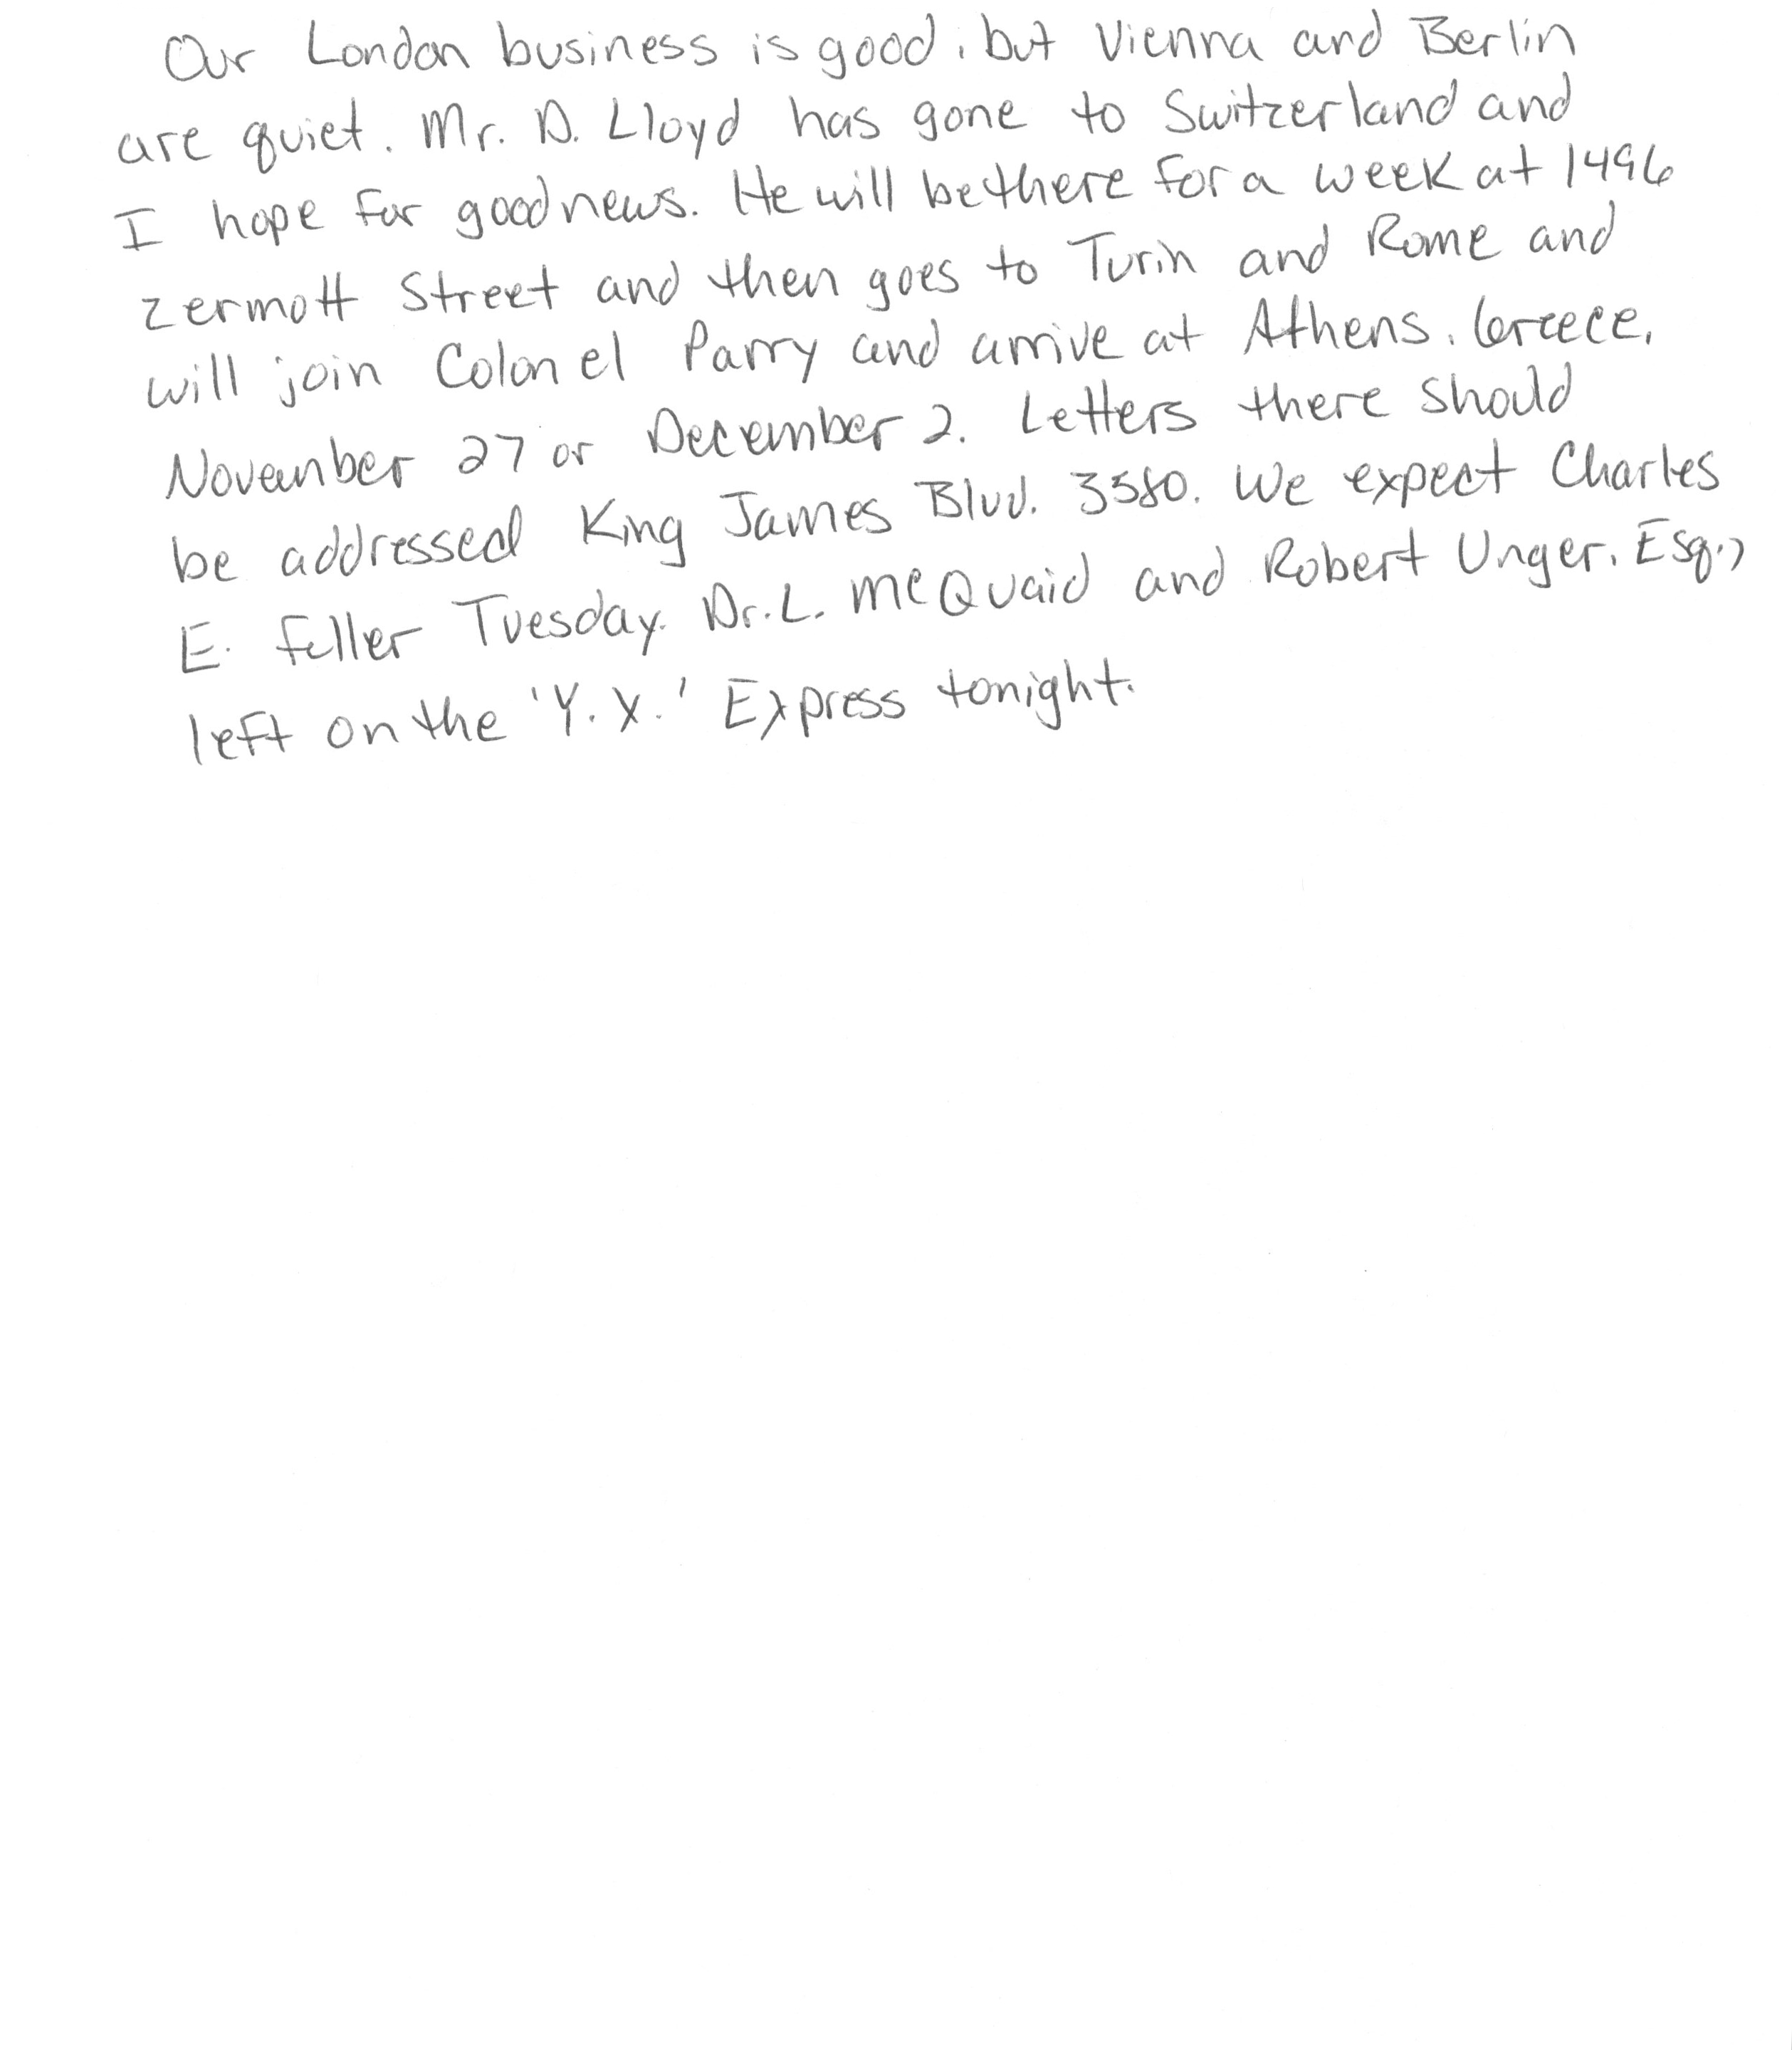 Our London business is good, but Vienna and Berlin
are quiet. Mr. D. Lloyd has gone to Switzerland and
I hope for good news. He will be there for a week at 1496
Zermott Street and then goes to Turin and Rome and
will join Colonel Parry and arrive at Athens, Greece,
November 27 or December 2. Letters there should
be addressed King James Blvd. 3580. We expect Charles
E. Fuller Tuesday. Dr. L. McQuaid and Robert Unger, Esq.,
left on the 'Y.X.' Express tonight.